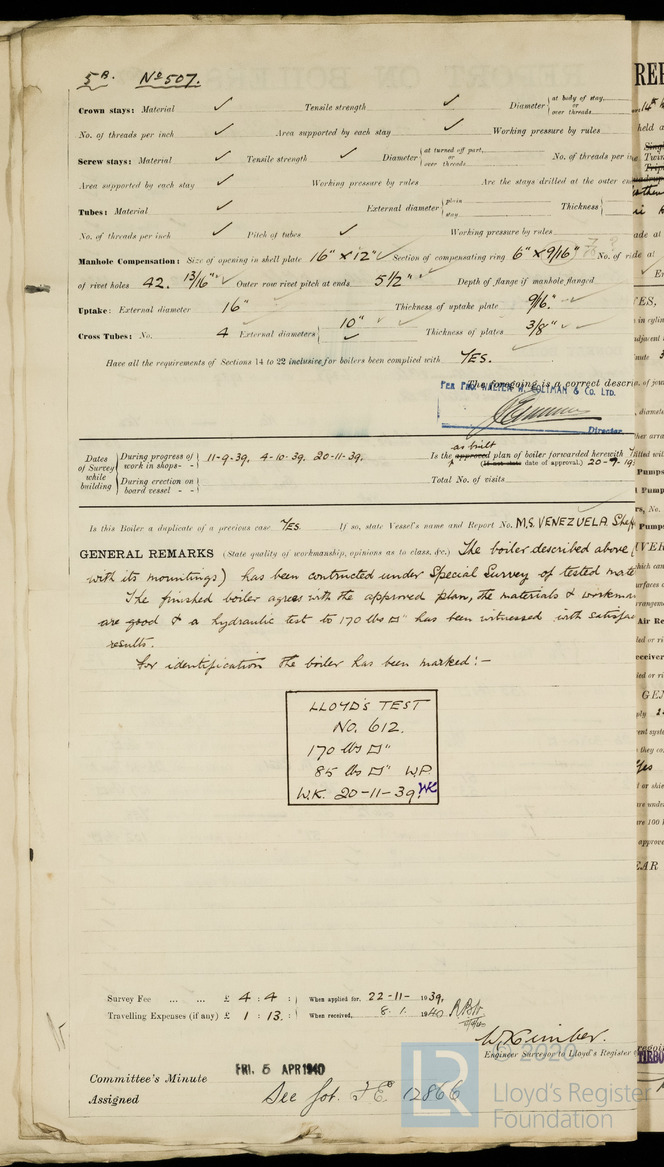 5B. No 507.
Crown stays: Material ✓ Tensile strength ✓ Diameter { at body of stay, or over threads
No. of threads per inch ✓ Area supported by each stay ✓ Working pressure by rules
Screw stays: Material ✓ Tensile strength ✓ Diameter { at turned off part, or over threads No. of threads per
Area supported by each stay ✓ Working pressure by rules Are the stays drilled at the outer
Tubes: Material ✓ External diameter { plain stay Thickness {
No. of threads per inch ✓ Pitch of tubes ✓ Working pressure by rules
Manhole Compensation: Size of opening in shell plate 16" × 12" ✓ Section of compensating ring 6" × 9/16" No. of
of rivet holes 42. 13/16" ✓ Outer row rivet pitch at ends 5 1/2" ✓ Depth of flange if manhole flanged
Uptake: External diameter 16" Thickness of uptake plate 9/16" ✓
Cross Tubes: No. 4 External diameters { 10" ✓ Thickness of plates 3/8" ✓ ✓
Have all the requirements of Sections 14 to 22 inclusive for boilers been complied with YES.
The foregoing is a correct
PER PRO WALTER W. COLTMAN & CO. LTD.
Director
Dates of Survey while building { During progress of work in shops - - } 11-9-39, 4-10-39, 20-11-39.
as built
Is the approved plan of boiler forwarded herewith
(If not state date of approval.) 20-9-19
During erection on board vessel - - } Total No. of visits
Is this Boiler a duplicate of a previous case YES. If so, state Vessel's name and Report No. M.S. VENEZUELA
GENERAL REMARKS (State quality of workmanship, opinions as to class, &c.) The boiler described above
with its mountings) has been contructed under Special Survey of tested
The finished boiler agrees with the approved plan, the materials &
are good & a hydraulic test to 170 lbs □" has been witnessed with
results.
For identification the boiler has been marked:-
LLOYD'S TEST
No. 612.
170 lbs □"
85 lbs □" W.P.
W.K. 20-11-39. WK
Survey Fee ... ... £ 4 : 4 : } When applied for, 22-11- 1939,
Travelling Expenses (if any) £ 1 : 13 : } When received, 8. 1. 1940
W. Kimber.
Engineer Surveyor to Lloyd's Register
Committee's Minute FRI. 5 APR 1940
Assigned See Got. F.E. 12866
© 2020
LR
Lloyd's Register
Foundation